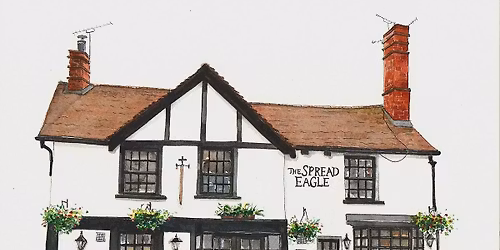 THE SPREAD
EAGLE